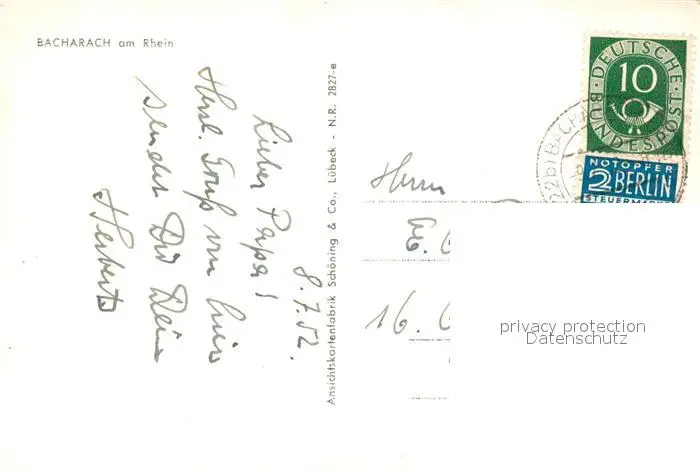 BACHARACH am Rhein
8.7.52.
Lieber Papa!
Herzl. Gruß von hier
sendet Dir Dein
Herbert
Ansichtskartenfabrik Schöning & Co., Lübeck - N.R. 2827-e
DEUTSCHE BUNDESPOST
10
NOTOPFER
2 BERLIN
STEUERMARKE
(22b) BACH
Herrn
16.
privacy protection
Datenschutz